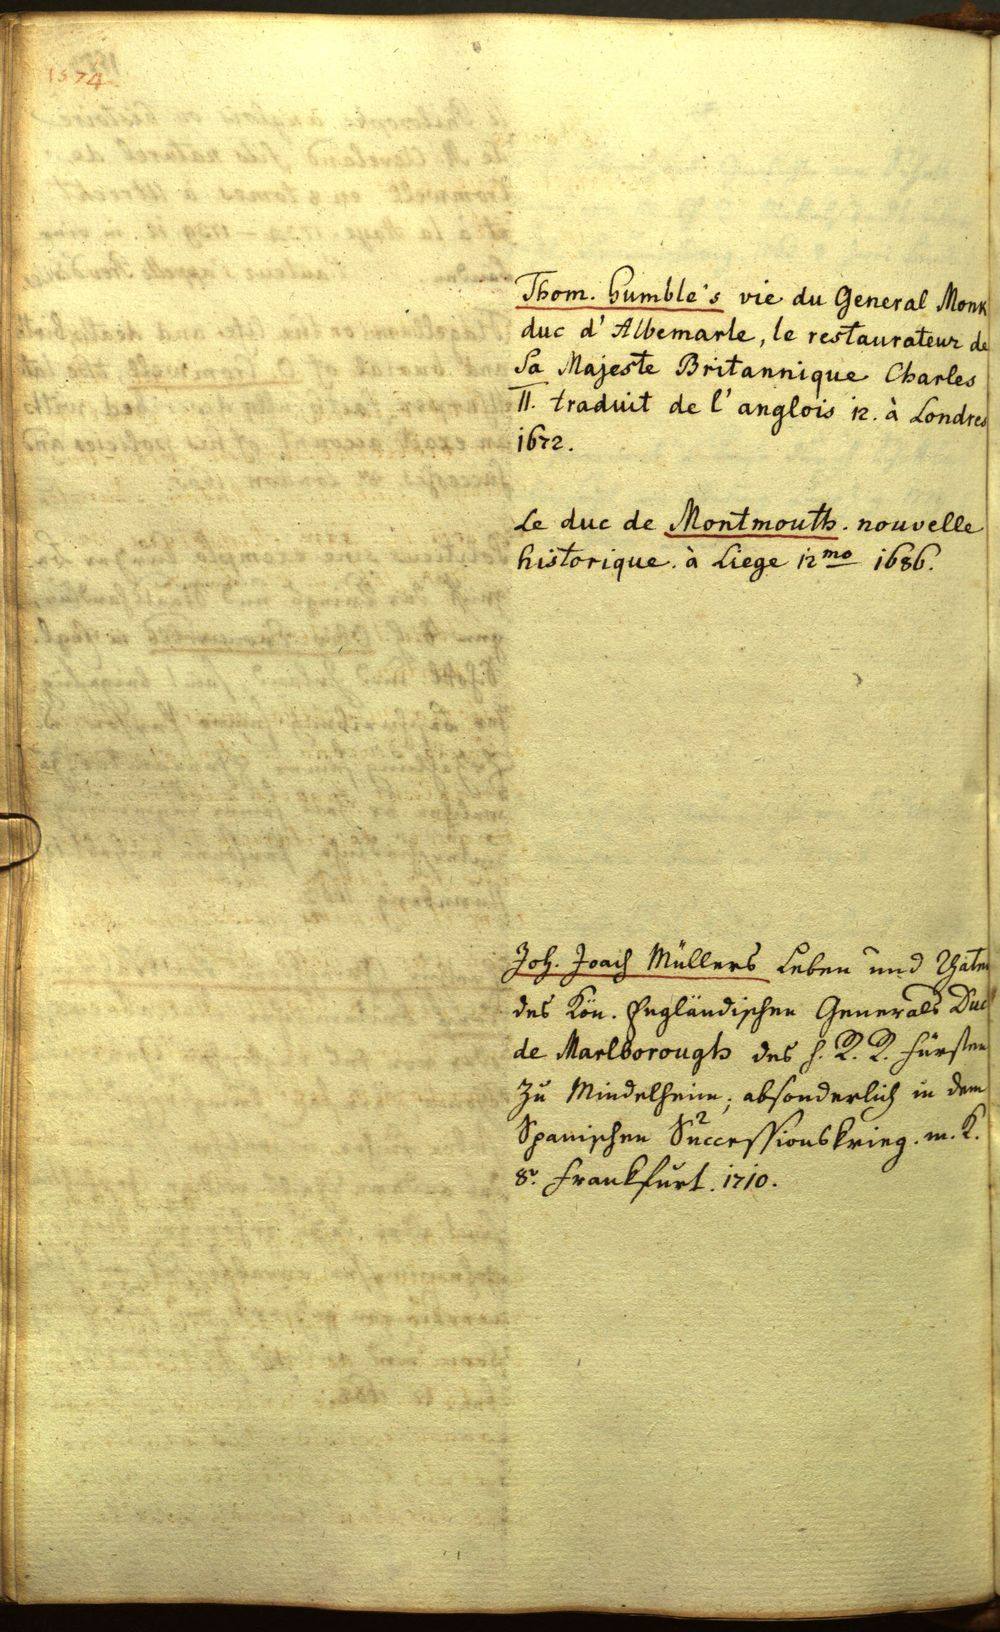 1574
Thom. humble's vie du General Monk
duc d' Albemarle, le restaurateur de
Sa Majeste Britannique Charles
II. traduit de l' anglois 12. à Londres
1672.
Le duc de Montmouth. nouvelle
historique. à Liege 12mo 1686.
Joh. Joach Müllers Leben und Thaten
des Kön. Engländischen Generals Duc
de Marlborough des h. R. R. Fürsten
zu Mindelheim, absonderlich in dem
Spanischen Successionskrieg. m. K.
8º. Frankfurt. 1710.